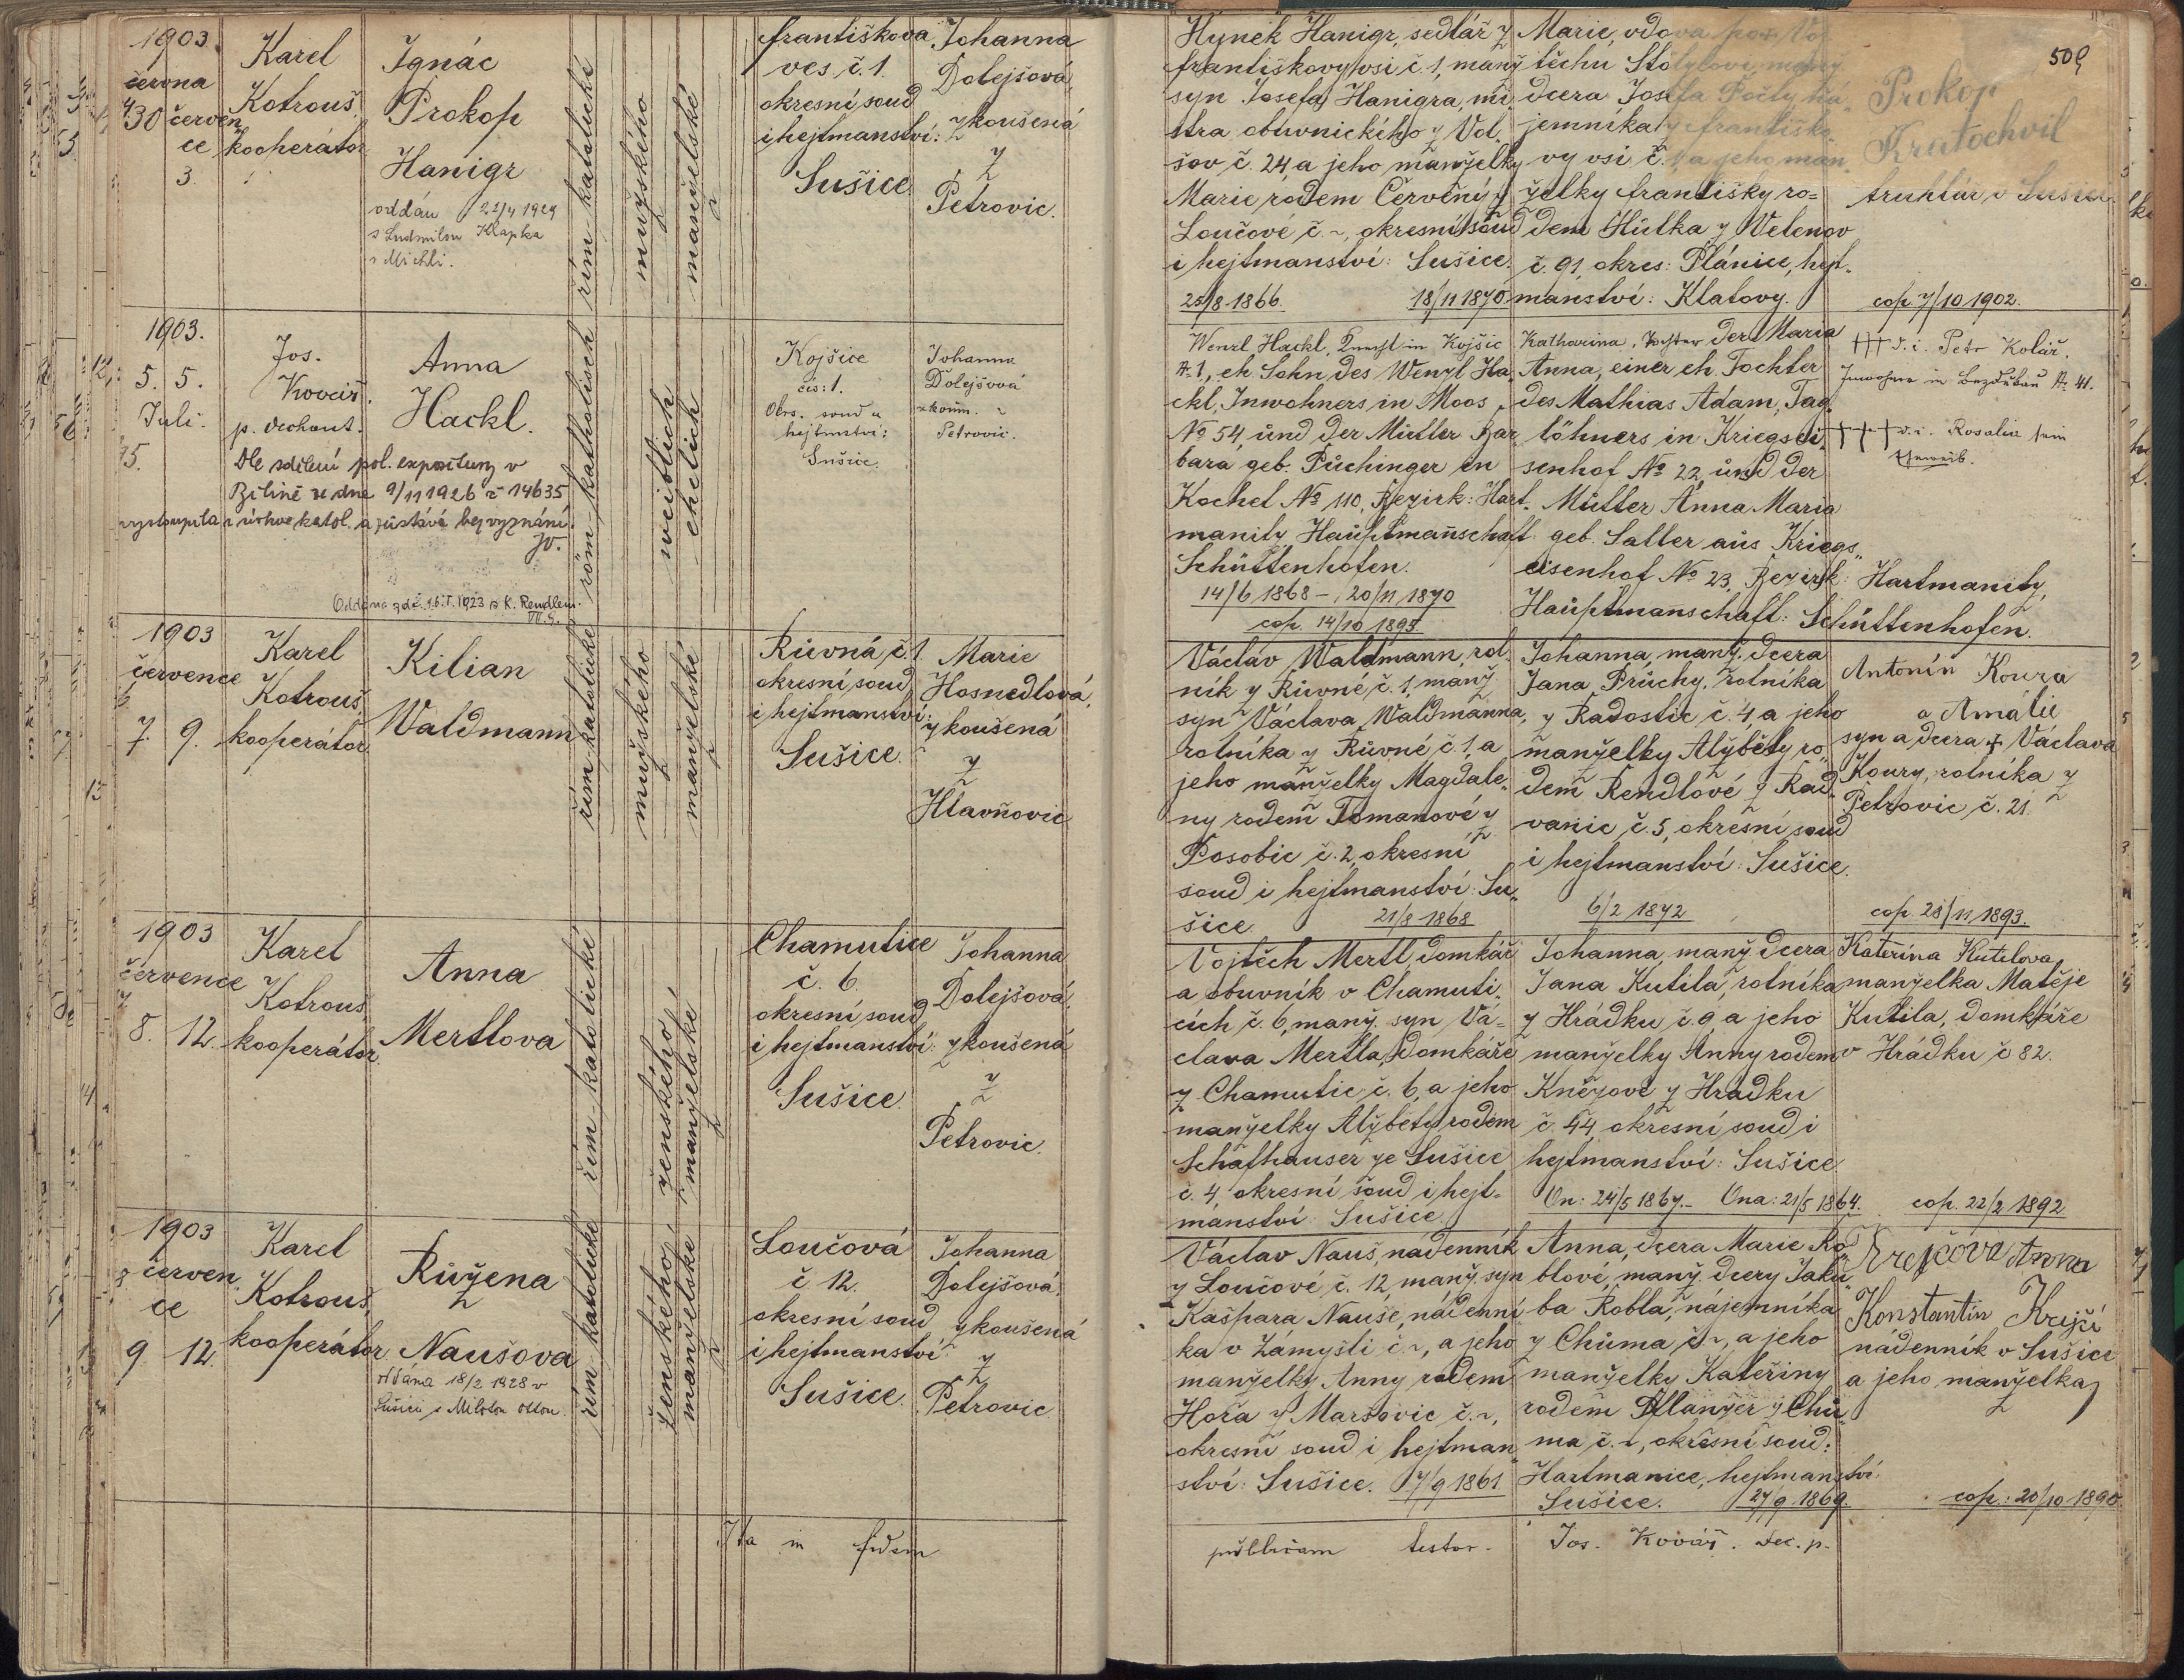 1903
června
30 červen
ce
3.
Karel
Kotrouš,
kooperátor
Ignác
Prokop
Hanigr
oddán 21/4 1929
s Ludmilou Klapka
v Michli.
řím. katolické
mužského
manželské
Františkova
ves č. 1.
okresní soud
i hejtmanství:
Sušice
Johanna
Dolejšová,
zkoušená
z
Petrovic.
Hynek Hanigr, sedlář z
Františkovy vsi č. 1, manž.
syn Josefa Hanigra, mi
stra obuvnického z Vol
šov č. 24 a jeho manželky
Marie rodem Červený z
Loučové č. ~, okresní soud
i hejtmanství: Sušice.
25/8 1866.
18/11 1870
Marie, vdova po
těchu
dcera Josefa
jemníka z Františko
vy vsi č. 1 a jeho man
želky Františky ro=
dem Hůlka z Velenov
č. 91, okres: Plánice, hejt-
manství: Klatovy.
509
Prokop
Kratochvil
truhlář v Sušici.
cop. 7/10 1902.
1903.
5. 5.
Juli.
Jos.
Kovář.
p. dechant.
Anna
Hackl.
Dle sdělení pol. expositury v
Bílině ze dne 9/11 1926 č 14635
vystoupila z církve katol. a zůstává bez vyznání.
Oddána 16. I. 1923 s K. Rendlem.
röm-katholisch
weiblich
ehelich
Kojšice
čís: 1.
Okrs. soud a
hejtmství:
Sušice.
Johanna
Dolejšová
zkouš. z
Petrovic.
Wenzl Hackl, Knecht in Kojšic
№ 1, eh. Sohn des Wenzl Ha
ckl, Inwohners in Moos
№ 54, und der Mutter Bar
bara geb. Püchinger in
Kochet № 110, Bezirk: Hart-
manitz, Hauptmannschaft
Schüttenhofen.
14/6 1868 — , 20/11 1870
cop. 14/10 1895
Katharina, Tochter der Maria
Anna, einer eh. Tochter
des Mathias Adam, Tag
löhners in Kriegsei
senhof № 22, und der
Mutter Anna Maria
geb. Saller aus Kriegs
eisenhof № 23, Bezirk: Hartmanitz,
Hauptmanschaft: Schüttenhofen.
††† d. i. Petr Kolář,
Inwohner in Bezděkau № 41.
††† d. i. Rosalia sein
Eheweib.
1903
července
7. 9.
Karel
Kotrouš,
kooperátor
Kilian
Waldmann
řím. katolické
mužského
manželské
Růvná, č. 1
okresní soud
i hejtmanství:
Sušice.
Marie
Hosnedlová,
zkoušená
z
Hlavňovic
Václav Waldmann, rol
ník z Růvné č. 1, manž.
syn Václava Waldmanna,
rolníka z Růvné č. 1, a
jeho manželky Magdale
ny rodem Tomanové z
Posobic č. 2, okresní
soud i hejtmanství: Su
šice.
21/8 1868
Johanna, manž. dcera
Jana Průchy, rolníka
z Radostic č. 4 a jeho
manželky Alžběty ro
dem Rendlové z Rad
vanic č. 5, okresní soud
i hejtmanství: Sušice.
6/2 1872
Antonín Koura
a Amálie
syn a dcera † Václava
Koury, rolníka z
Petrovic č. 21.
cop. 28/11 1893.
1903
července
8. 12.
Karel
Kotrouš,
kooperátor.
Anna
Mertlova
řím-katolické
ženského
manželské
Chamutice
č. 6.
okresní soud
i hejtmanství:
Sušice.
Johanna
Dolejšová,
zkoušená
z
Petrovic.
Vojtěch Mertl, domkář
a obuvník v Chamuti
cích č. 6, manž. syn Vá=
clava Mertla, domkáře
z Chamutic č. 6, a jeho
manželky Alžběty rodem
Schafhauser ze Sušice
č. 4, okresní soud i hejt=
manství: Sušice.
Johanna, manž. dcera
Jana Kutila, rolníka
z Hrádku č. 9, a jeho
manželky Anny rodem
Knězové z Hradku
č. 44, okresní soud i
hejtmanství: Sušice.
On: 24/5 1867. — Ona: 21/5 1864.
Kateřina Kutilova
manželka Matěje
Kutila, domkáře
v Hrádku č 82.
cop. 22/2 1892
1903
červen
ce
9. 12.
Karel
Kotrouš,
kooperátor
Růžena
Naušova
oddána 18/2 1928 v
Sušici s Milotou Ottou.
řím-katolické
ženského
manželské
Loučová
č 12.
okresní soud
i hejtmanství:
Sušice.
Johanna
Dolejšová,
zkoušená
z
Petrovic
Václav Nauš, nádenník
z Loučové č. 12, manž. syn
Kašpara Nauše, nádenní
ka v Zámyšli č. ~, a jeho
manželky Anny rodem
Hořa z Maršovic č. ~,
okresní soud i hejtman
ství: Sušice. 7/9 1861
Anna, dcera Marie Ro
blové, manž. dcery Jaku
ba Robla, nájemníka
z Chůma č. ~, a jeho
manželky Kateřiny
rodem z Chů
ma č. ~, okresní soud:
Hartmanice, hejtmanství:
Sušice. 27/9 1869.
Krejčova Anna
Konstantin Krejčí
nádenník v Sušici
a jeho manželka
cop.: 20/10 1890
Ita in fidem
publicam testor. Jos. Kovář. dec. p.